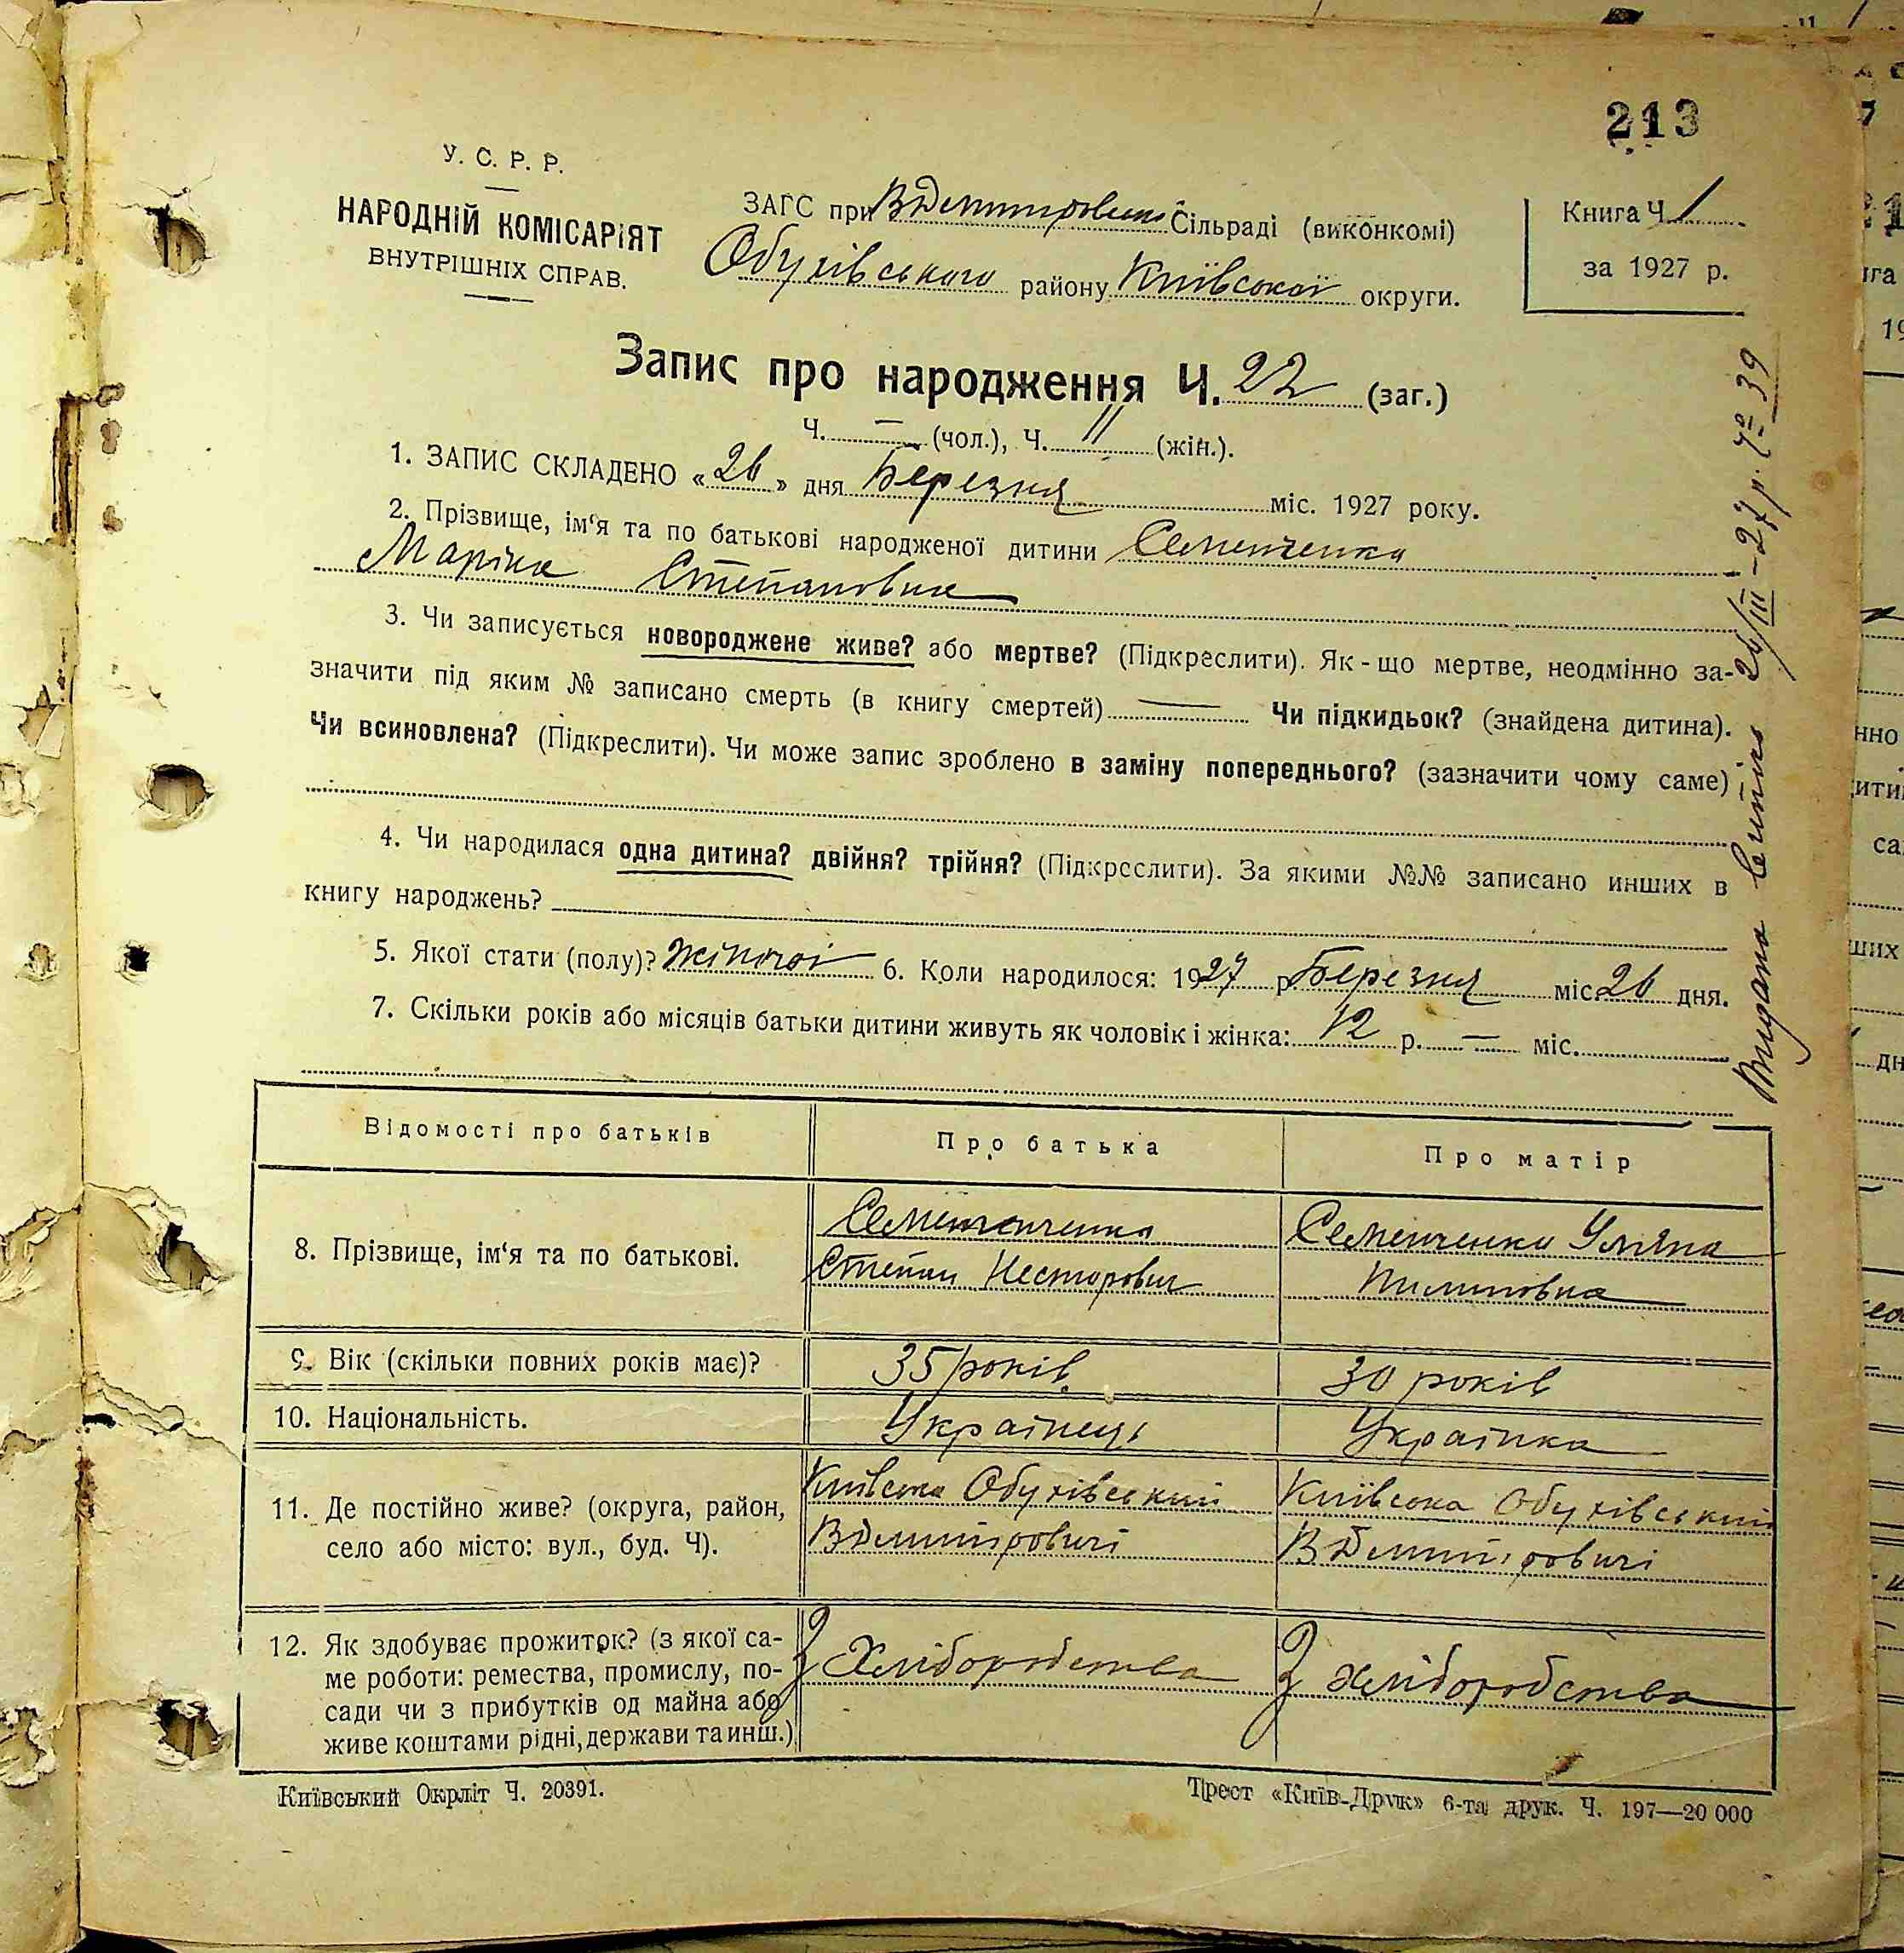 213
У. С. Р. Р.
НАРОДНІЙ КОМІСАРІЯТ
ВНУТРІШНІХ СПРАВ.
ЗАГС при ВДмитровській Сільраді (виконкомі)
Обухівського району Київської округи.
Книга Ч. 1
за 1927 р.
Запис про народження Ч. 22 (заг.)
Ч. — (чол.), Ч. 11 (жін.).
1. ЗАПИС СКЛАДЕНО «26» дня Березня міс. 1927 року.
2. Прізвище, ім‘я та по батькові народженої дитини Семенченко
Маріна Степановна
3. Чи записується новороджене живе? або мертве? (Підкреслити). Як-що мертве, неодмінно за-
значити під яким № записано смерть (в книгу смертей) — Чи підкидьок? (знайдена дитина).
Чи всиновлена? (Підкреслити). Чи може запис зроблено в заміну попереднього? (зазначити чому саме)
4. Чи народилася одна дитина? двійня? трійня? (Підкреслити). За якими №№ записано инших в
книгу народжень?
5. Якої стати (полу)? Жіночої 6. Коли народилося: 1927 р. Березня міс. 26 дня.
7. Скільки років або місяців батьки дитини живуть як чоловік і жінка: 12 р. — міс.
Видано витяг 26/III-27 р. № 39
Відомості про батьків
Про батька
Про матір
8. Прізвище, ім‘я та по батькові.
Семенченко
Степан Несторович
Семенченко Уляна
Пилиповна
9. Вік (скільки повних років має)?
35 років
30 років
10. Національність.
Українець
Українка
11. Де постійно живе? (округа, район,
село або місто: вул., буд. Ч).
Київська Обухівський
ВДмитровичі
Київська Обухівський
ВДмитровичі
12. Як здобуває прожиток? (з якої са-
ме роботи: ремества, промислу, по-
сади чи з прибутків од майна або
живе коштами рідні, держави та инш.)
З Хліборобства
З хліборобства
Київський Окрліт Ч. 20391.
Трест «Київ-Друк» 6-та друк. Ч. 197—20 000